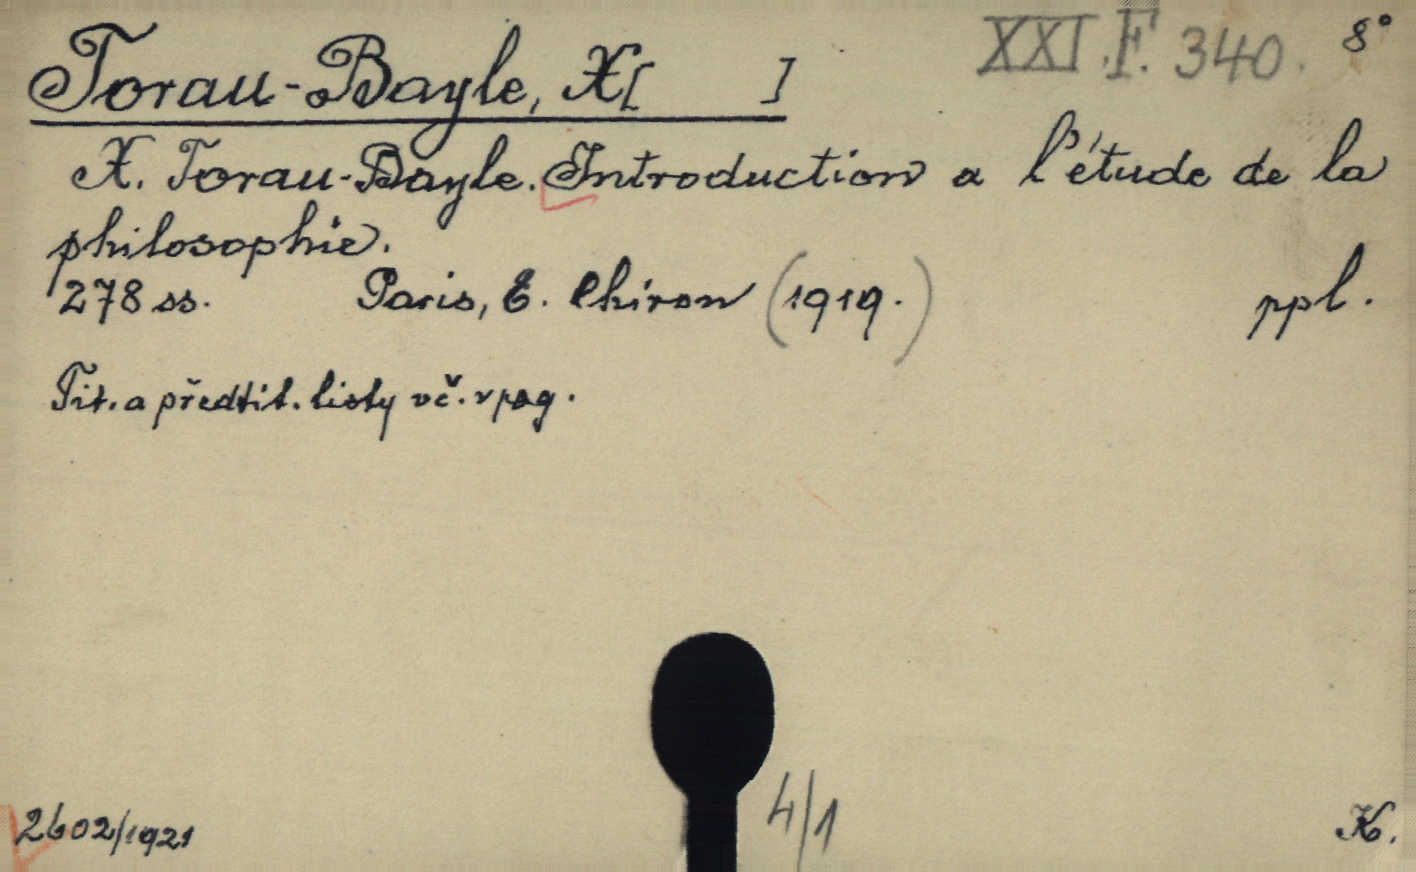 XXI.F. 340. 8°
Torau-Bayle, X[ ]
X. Torau-Bayle. Introduction a l'étude de la
philosophie.
278 ss. Paris, E. Chiron (1919.) ppl.
Tit. a předtit. listy vč. v pag.
4/1
2602/1921 K.